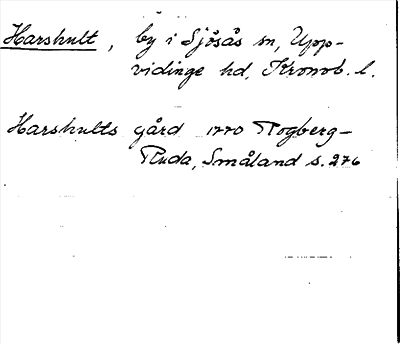 Harshult, by i Sjösås sn, Upp-
vidinge hd, Kronob. l.
Harshults gård 1770 Rogberg-
Ruda, Småland s. 276